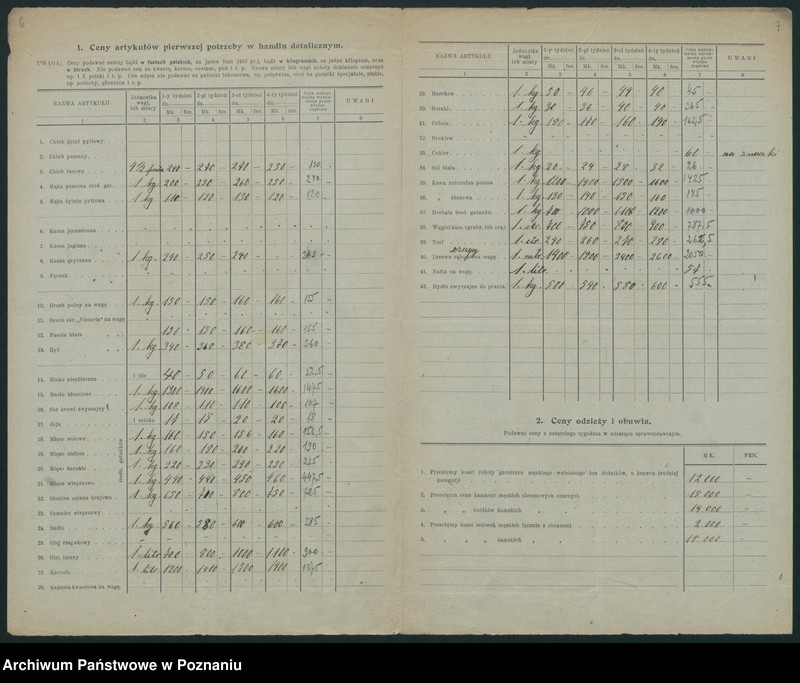 6
1. Ceny artykułów pierwszej potrzeby w handlu detalicznym.
UWAGA: Ceny podawać należy bądź w funtach polskich, za jeden funt (405 gr.), bądź w kilogramach, za jeden kilogram, oraz
w litrach. Nie podawać cen za kwarty, korzec, centnar, pud i t. p. Nazwę miary lub wagi należy dokładnie oznaczyć
np. 1 f. polski i t. p. Cen mięsa nie podawać za gatunki luksusowe, np. polędwica, oraz za gatunki specjalnie niskie,
np. podroby, głowizna i t. p.
NAZWA ARTYKUŁU Jednostka wagi, lub miary 1-y tydzień dn. 2-gi tydzień dn. 3-ci tydzień dn. 4-ty tydzień dn. UWAGI
Mk. fen. Mk. fen. Mk. fen. Mk. fen.
1 2 3 4 5 6 7 8
1. Chleb żytni pytlowy
2. Chleb pszenny
3. Chleb razowy 230 130
4. Mąka pszenna śred. gat. 1 kg 200 – 250 – 260 – 250 – 240
5. Mąka żytnia pytlowa 1 kg 110 110 – 130 – 120 – 120
6. Kasza jęczmienna
7. Kasza jaglana
8. Kasza gryczana 1 kg. 240 – 250 – 240 – 243
9. Pęczak
10. Groch polny na wagę 1 kg. 150 – 150 – 160 – 160 – 155
11. Groch okr. „Victoria" na wagę
12. Fasola biała 150 – 150 – 160 – 160 – 155
13. Ryż 1 kg. 340 – 360 – 380 – 360
14. Mleko niezbierane 1 litr 40 – 50 – 60 – 60 – 52,5
15. Masło śmietane 1 kg. 1300 – 1400 – 1600 – 1600 – 1475
16. Ser krowi zwyczajny 1 kg. 100 – 110 – 110 – 100 – 107
17. Jaja 1 sztuka 20 – 20 – 18
18. Mięso wołowe 1 kg. 160 – 150 – 156 – 160 –
19. Mięso cielęce 1 kg. 160 – 180 – 200 – 220 – 190
20. Mięso baranie 1 kg. 220 – 230 – 240 – 250 – 235
21. Mięso wieprzowe 1 kg. 440 – 440 – 450 – 460 – 447,5
22. Słonina solona krajowa 1 kg. 650 – 700 – 800 – 750 – 725
23. Smalec wieprzowy
24. Sadło 1 kg. 560 – 580 – 600 – 600 – 585
25. Olej rzepakowy
26. Olej lniany 1 litr 700 – 800 – 1000 – 1100 – 900
27. Karbolit 1 litr 1200 – 1400 – 1200 – 1400
28. Kapusta kwaszona na wagę
średn. gatunków
7
NAZWA ARTYKUŁU Jednostka wagi, lub miary 1-y tydzień dn. 2-gi tydzień dn. 3-ci tydzień dn. 4-ty tydzień dn. UWAGI
Mk. fen. Mk. fen. Mk. fen. Mk. fen.
1 2 3 4 5 6 7 8
29. Marchew 1 kg 50 – 40 – 44 – 40 – 45
30. Buraki 1. kg. 30 – 36 – 40 – 40 – 36,5
31. Cebula 1. kg. 180 – 180 – 160 – 140 – 162,5
32. Brukiew
33. Cukier 1. kg 60 – na znaczki
34. Sól biała 1. kg 20. – 24 – 28 – 32 – 26 –
35. Kawa naturalna palona 1. kg 1200 – 1400 – 1500 – 1600 – 1425
36. „ zbożowa 1. kg 130 – 140 – 150 – 160 – 145
37. Herbata śred. gatunku 1. kg 1000 – 1200 – 1000
38. Węgiel kam. (gruby, lub orz.) 700 – 750 – 900 – 787,5
39. Torf 240 – 260 – 270 – 280 – 262,5
40. Drzewo na wagę 1400 – 1800 – 2400 – 2600 – 2050
41. Nafta na wagę 1. litr.
42. Mydło zwyczajne do prania 1. kg. 500 – 540 – 550 – 600 – 555
2. Ceny odzieży i obuwia.
Podawać ceny z ostatniego tygodnia w miesiącu sprawozdawczym.
MK. FEN.
1. Przeciętny koszt roboty garnituru męskiego wełnianego bez dodatków, u krawca średniej
kategorji 12 000 –
2. Przeciętna cena kamaszy męskich chromowych czarnych 15 000 –
3. „ „ bucików damskich „ 14 000 –
4. Przeciętny koszt zelówek męskich łącznie z obcasami 2 000 –
5. „ „ „ damskich „ „ 18 000 –
8
Archiwum Państwowe w Poznaniu